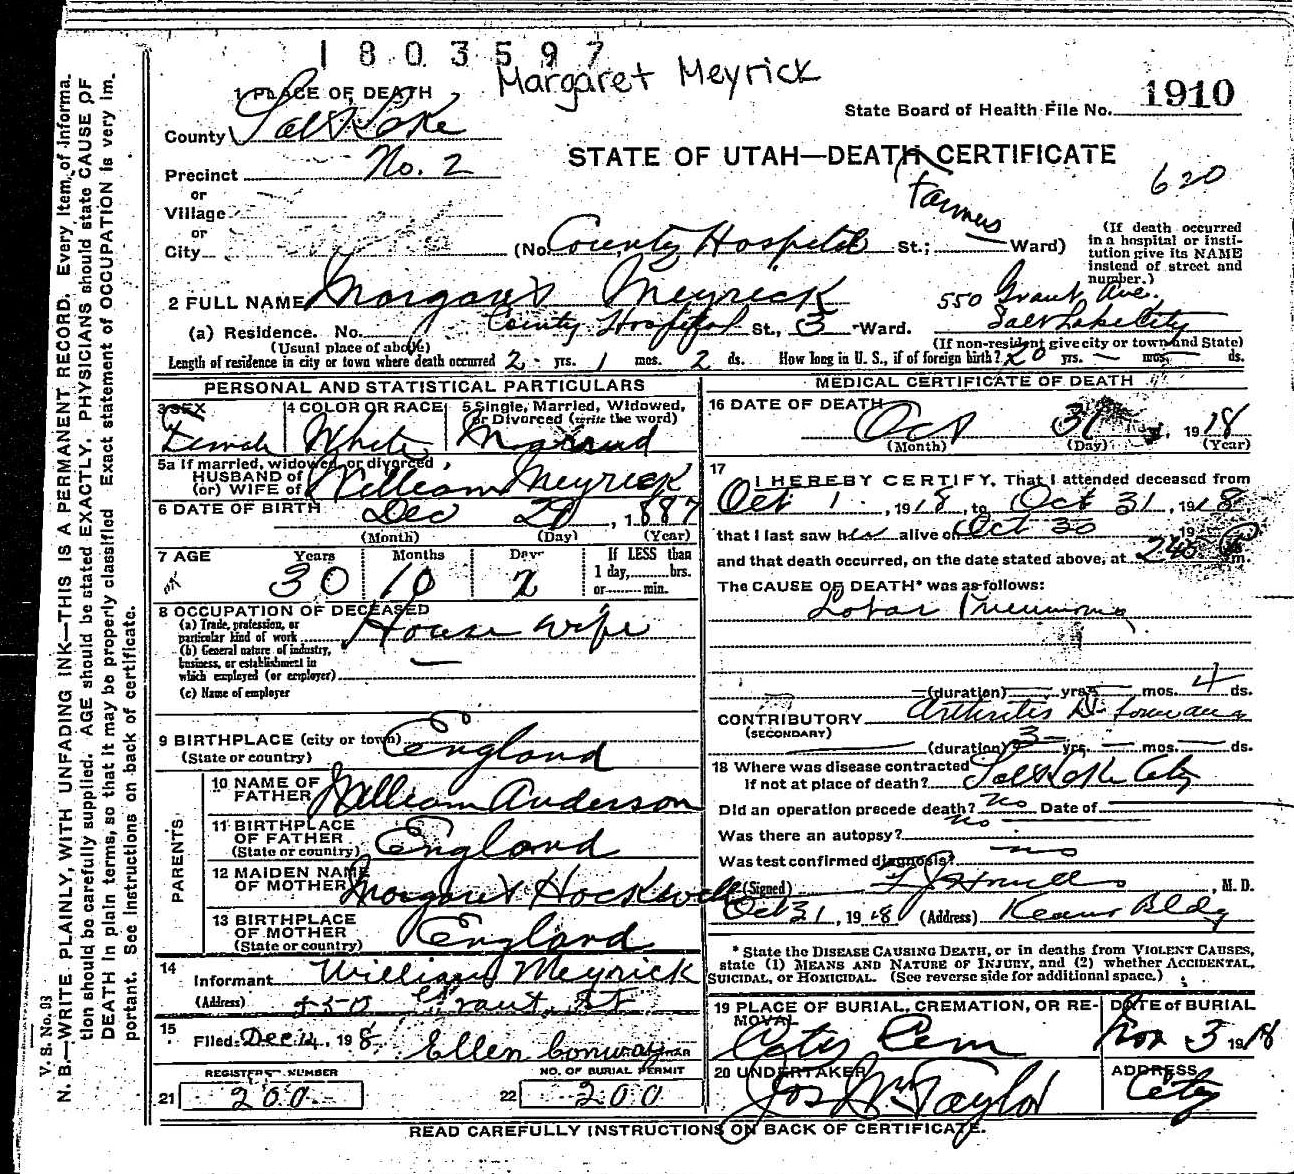 1803597
Margaret Meyrick
1 PLACE OF DEATH
State Board of Health File No. 1910
County Salt Lake
STATE OF UTAH—DEATH CERTIFICATE
Precinct No. 2
620
or
Village
Farmers
or
City (No. County Hospital St.; Ward)
(If death occurred in a hospital or institution give its NAME instead of street and number.)
2 FULL NAME Margaret Meyrick
550 Grant Ave.
(a) Residence. No. County Hospital St., 3 Ward. Salt Lake City
(Usual place of abode) (If non-resident give city or town and State)
Length of residence in city or town where death occurred 2 yrs. 1 mos. 2 ds. How long in U. S., if of foreign birth? 20 yrs. — mos. — ds.
PERSONAL AND STATISTICAL PARTICULARS
3 SEX Female
4 COLOR OR RACE White
5 Single, Married, Widowed, or Divorced (write the word) Married
5a If married, widowed, or divorced
HUSBAND of
(or) WIFE of William Meyrick
6 DATE OF BIRTH Dec 29, 1887
(Month) (Day) (Year)
7 AGE Years Months Days If LESS than
30 10 2 1 day,......hrs.
or........min.
8 OCCUPATION OF DECEASED
(a) Trade, profession, or particular kind of work House wife
(b) General nature of industry, business, or establishment in which employed (or employer) —
(c) Name of employer
9 BIRTHPLACE (city or town) England
(State or country)
PARENTS
10 NAME OF FATHER William Anderson
11 BIRTHPLACE OF FATHER England
(State or country)
12 MAIDEN NAME OF MOTHER Margaret
13 BIRTHPLACE OF MOTHER England
(State or country)
14 Informant William Meyrick
(Address) Grant St
15 Filed Dec 14, 1918 Ellen Conway
REGISTER'S NUMBER NO. OF BURIAL PERMIT
21 200 22 200
MEDICAL CERTIFICATE OF DEATH
16 DATE OF DEATH Oct 31, 1918
(Month) (Day) (Year)
17 I HEREBY CERTIFY, That I attended deceased from
Oct 1, 1918, to Oct 31, 1918
that I last saw her alive on Oct 30 19
and that death occurred, on the date stated above, at 245 m.
The CAUSE OF DEATH* was as follows:
Lobar Pneumonia
(duration) — yrs. — mos. 4 ds.
CONTRIBUTORY Arthritis Deformans
(SECONDARY)
(duration) 3 yrs. — mos. — ds.
18 Where was disease contracted
If not at place of death? Salt Lake City
Did an operation precede death? no Date of
Was there an autopsy? no
Was test confirmed diagnosis? no
(Signed) , M. D.
Oct 31, 1918 (Address) Kearns Bldg
* State the DISEASE CAUSING DEATH, or in deaths from VIOLENT CAUSES,
state (1) MEANS AND NATURE OF INJURY, and (2) whether ACCIDENTAL,
SUICIDAL, or HOMICIDAL. (See reverse side for additional space.)
19 PLACE OF BURIAL, CREMATION, OR REMOVAL City Cem
DATE of BURIAL Nov 3 1918
20 UNDERTAKER Jos Wm Taylor
ADDRESS City
READ CAREFULLY INSTRUCTIONS ON BACK OF CERTIFICATE.
V. S. No. 93
N. B.—WRITE PLAINLY, WITH UNFADING INK—THIS IS A PERMANENT RECORD. Every Item of Informa-
tion should be carefully supplied. AGE should be stated EXACTLY. PHYSICIANS should state CAUSE OF
DEATH in plain terms, so that it may be properly classified. Exact statement of OCCUPATION is very im-
portant. See instructions on back of certificate.